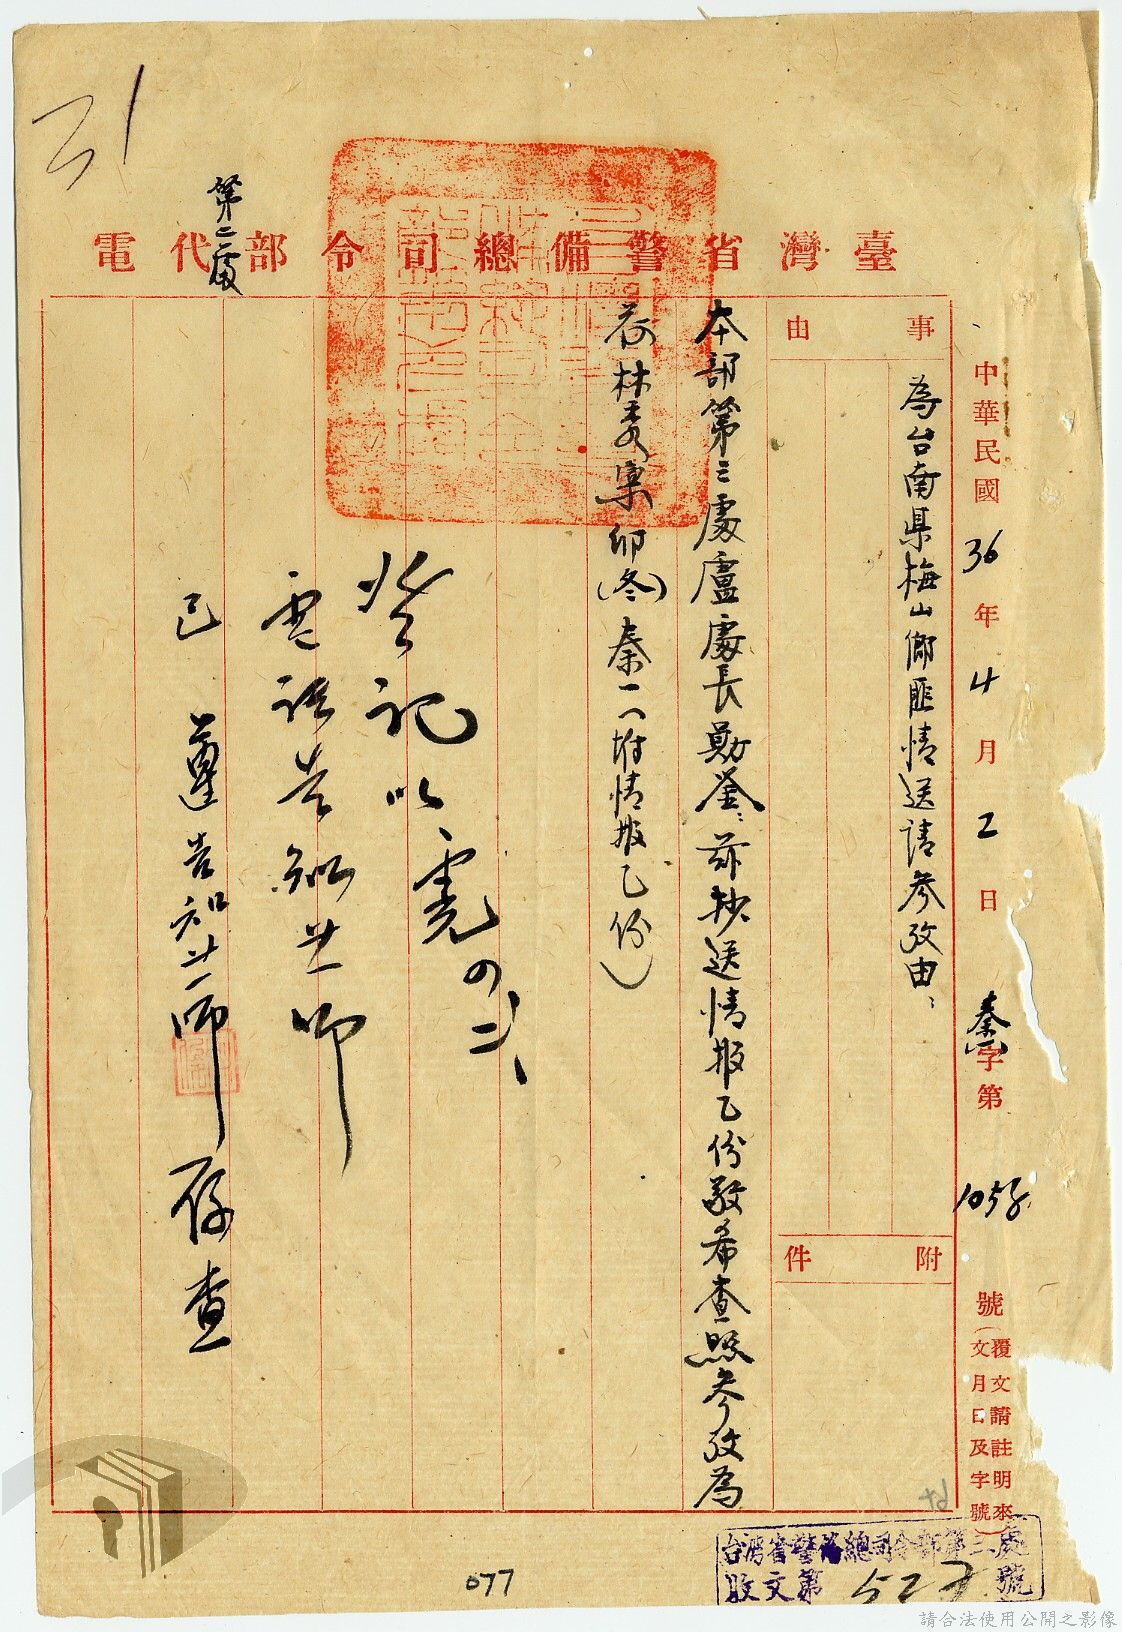 臺灣省警備總司令部代電
第二處
中華民國36年4月2日
秦一字第
號(覆文請註明來文月日及字號)
事由
為台南県梅山鄉匪情送請參攷由:
附件
本部第三處盧處長勛鑒:茲抄送情報乙份敬希查照參攷為
荷林秀欒卯(冬)秦一(附情報乙份)
登記
四、二
電話告知廿一師
已
告知廿一師
存查
台灣省警備總司令部第三處
收文第 號
077
請合法使用公開之影像